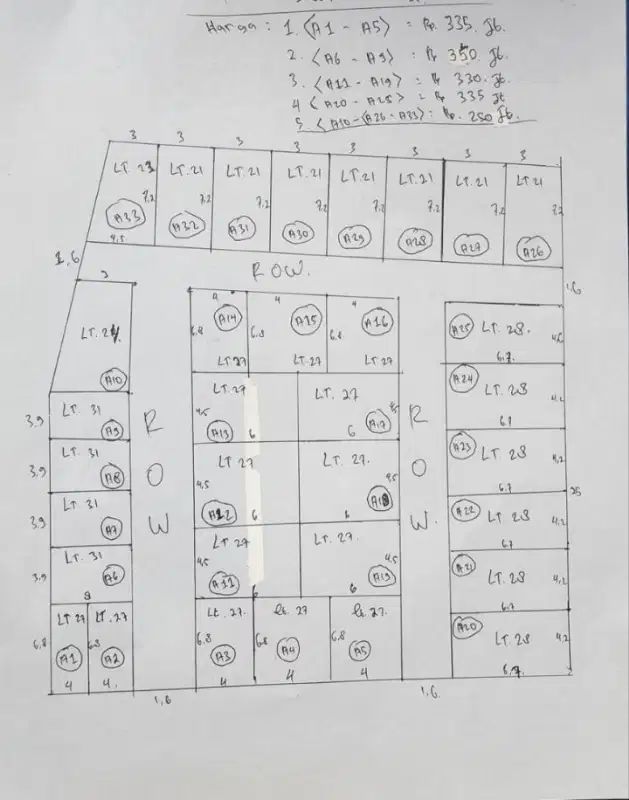 Harga : 1. <A1 - A5> : Rp. 335. Jt.
2. <A6 - A9> : Rp 350 Jt.
3. <A11 - A19> : Rp 330. Jt.
4 <A20 - A25> : Rp 335 Jt
5 <A10-<A26-A33> : Rp. 250 Jt.
3 3 3 3 3 3 3 3
LT. 23 LT. 21 LT. 21 LT. 21 LT. 21 LT. 21 LT. 21 LT 21
7,2 7,2 7,2 7,2 7,2 7,2 7,2 7,2
A33 A32 A31 A30 A29 A28 A27 A26
4,5
1,6 ROW. 1,6
3 4 4 4
6,8 A14 6,8 A15 6,8 A16
LT 27 LT. 27 LT 27
A25 LT. 28.
6.7.
LT.
A10
A24 LT. 28 4,2
3,9 LT. 31 A9
LT. 27 4,5 A13 6
LT. 27 6 A17
A23 LT. 28 4,2
6,7
3,9 LT. 31 A8
LT 27 4,5 A12 6
LT. 27. 4,5 A18 6
A22 LT 28 4,2
6,7
3,9 LT. 31 A7
LT 27 4,5 A11
LT. 27. 4,5 A19 6
A21 LT. 28 4,2
6,7
3,9 LT. 31 A6
ROW ROW.
LT 27 LT. 27 Lt. 27. Lt. 27 Lt. 27.
A20 LT. 28 4,2
6,8 A1 6,8 A2 6,8 A3 6,8 A4 6,8 A5
6,7
4 4. 4 4 4
1,6 1,6.